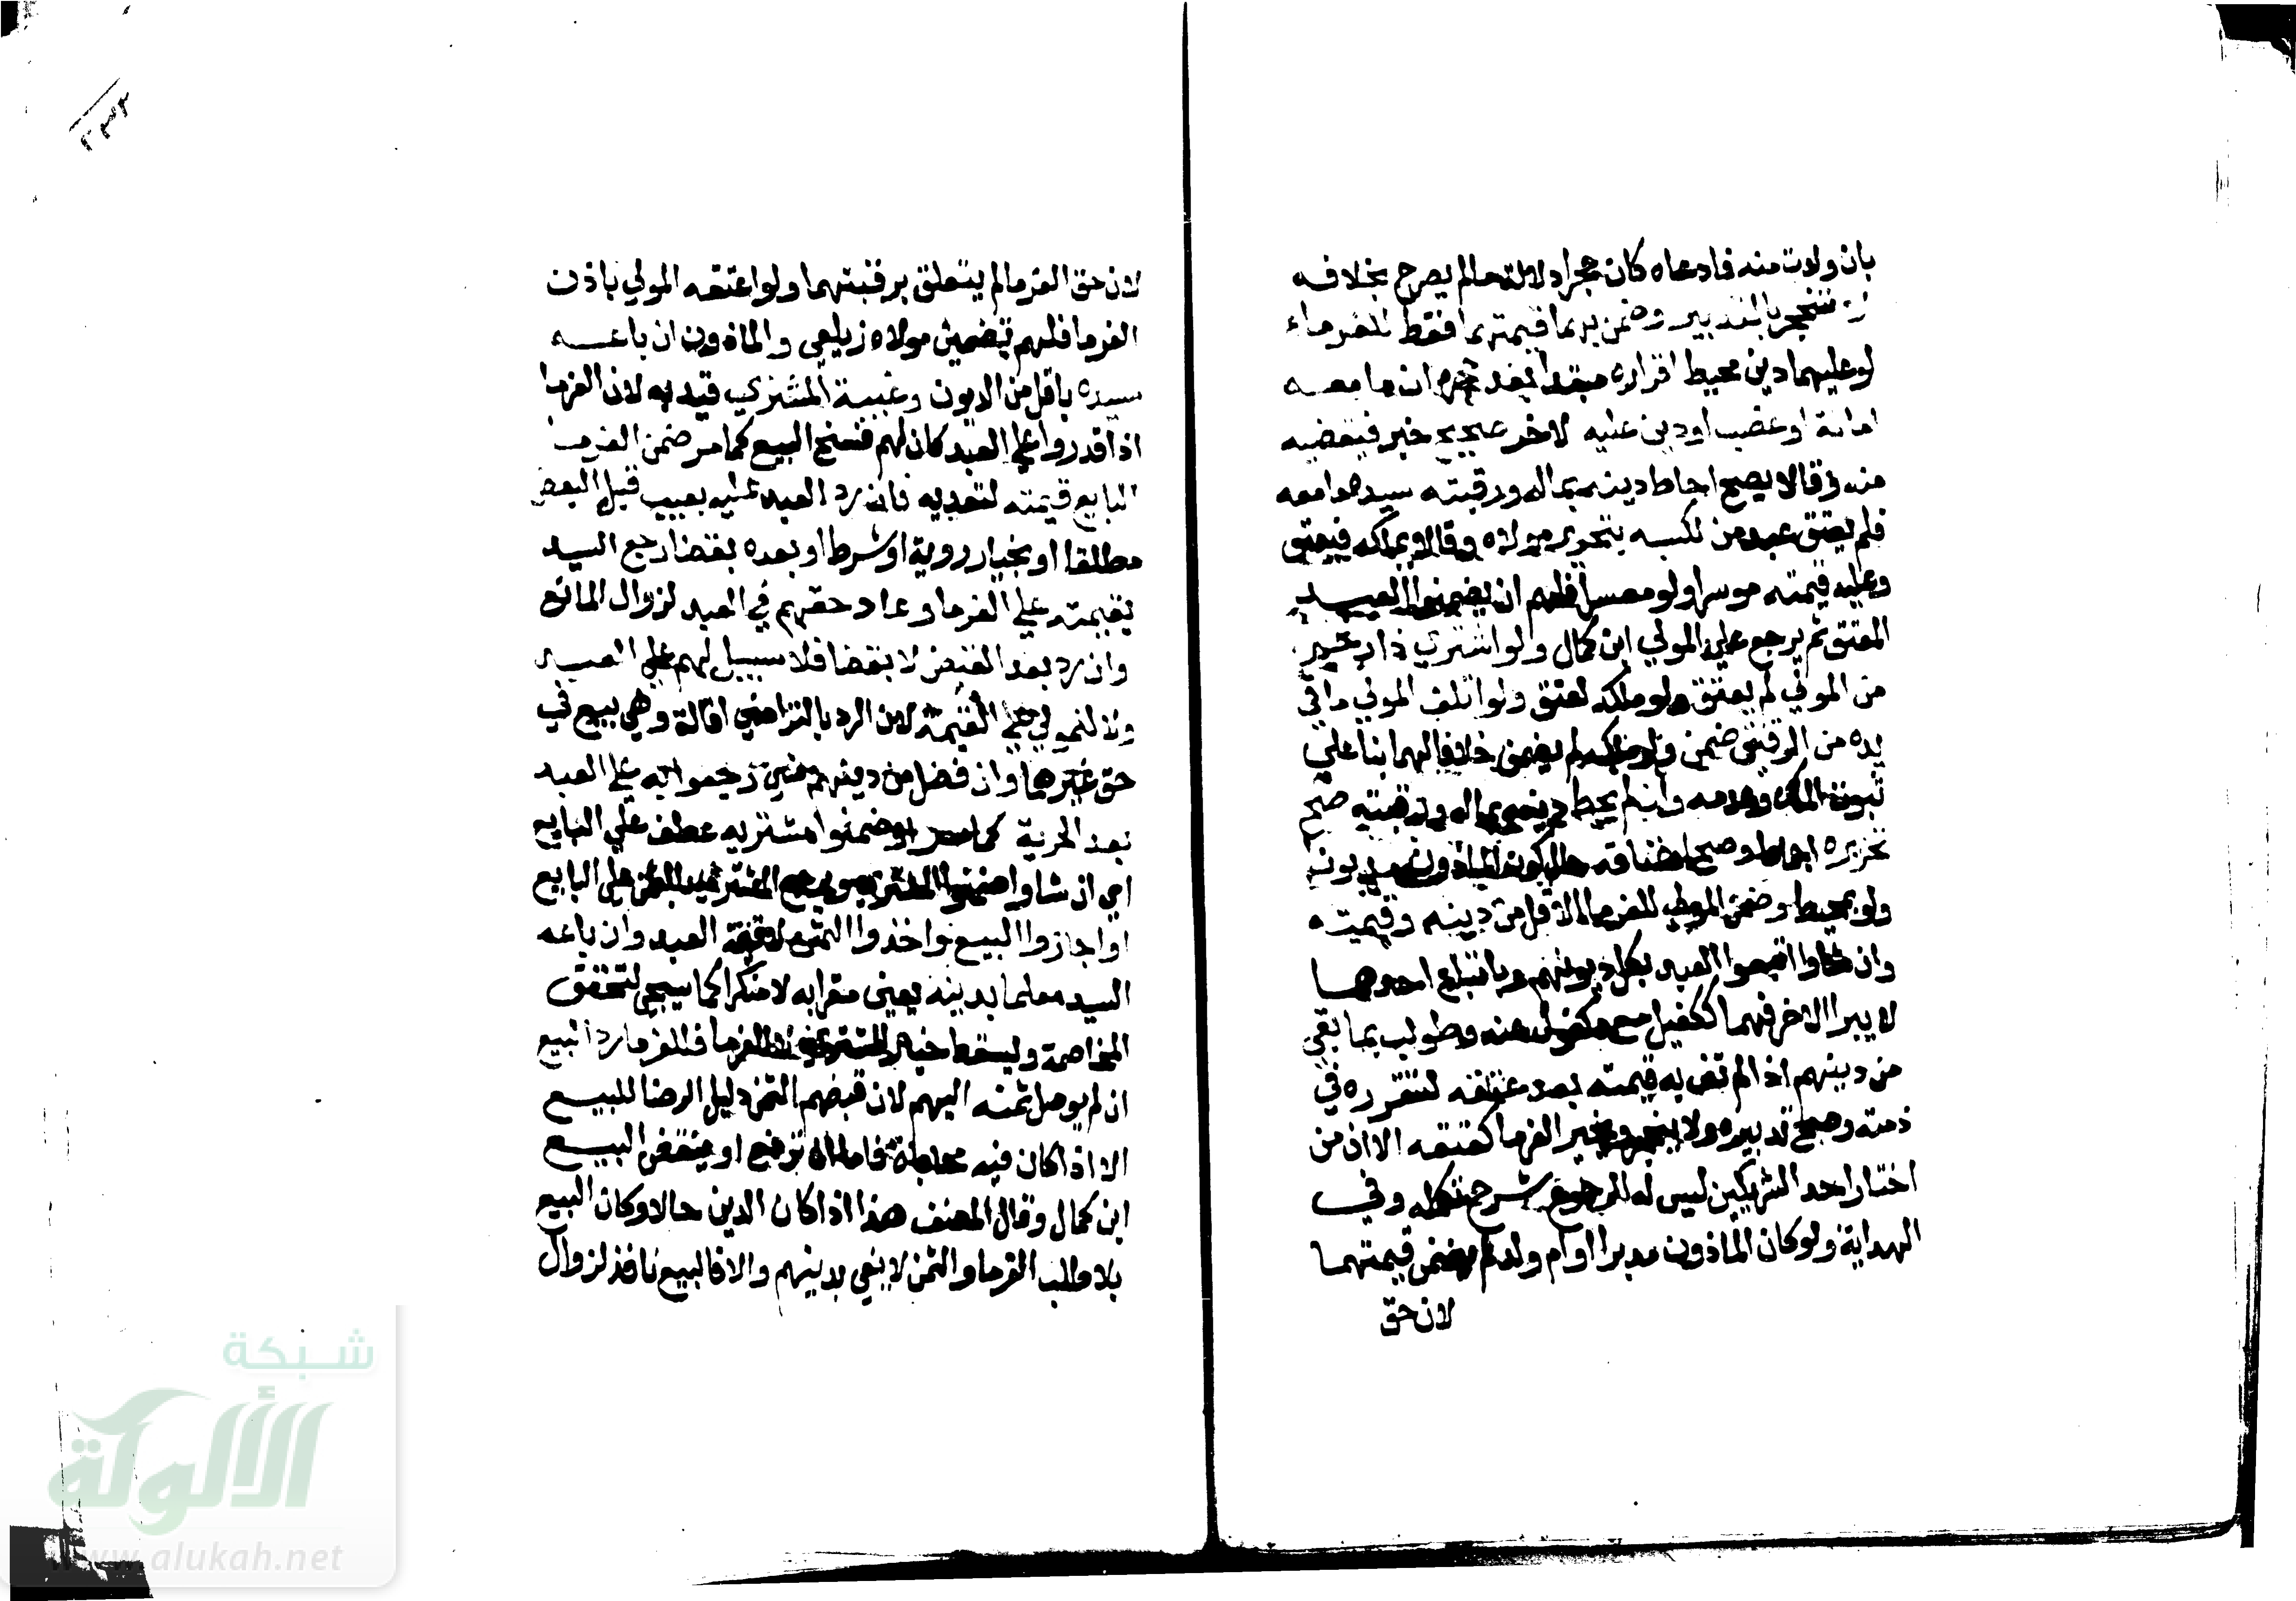 بان ولدت منه فادعاه كان حجرا دلالة ما لم يصرح بخلافه
لا تنحجر بالتدبير وضمن بهما قيمتهما فقط للغرماء
لو عليهما دين محيط اقراره مبتدا بعد حجره ان ما معه
امانة او غصب او دين عليه لاخر صحيح خبر فيقضيه
منه وقالا لا يصح احاط دينه بماله ورقبته سيده ما معه
فلم يعتق عبد من كسبه بتحرير مولاه وقالا يملكه فيعتق
وعليه قيمته موسرا ولو معسرا فلهم ان يضمنوا العبد
المعتق ثم يرجع علي المولي ابن كمال ولو اشتري ذا رحم
من المولي لم يعتق ولو ملكه لعتق ولو اتلف المولي ما في
يده من الرقيق ضمن ولو ملكه لم يضمن خلافا لهما بنا علي
ثبوت الملك وعدمه وان لم يحط دينه بماله ورقبته صح
تحريره اجماعا وصح اعتاقه حال كون الماذون مديونا
ولو بمحيط وضمن المولي للغرما الاقل من دينه وقيمته
وان شاوا اتبعوا العبد بكل ديونهم وباتباع احدهما
لا يبرا الاخر فهما ككفيل مع مكفول عنه وطولب بما بقي
من دينهم اذا لم تف به قيمته بعد عتقه لتقرره في
ذمته وصح تدبيره ولا ينحجر ويخير الغرما كعتقه الا ان من
اختار احد الشريكين ليس له الرجوع شرح تكمله وفي
الهداية ولو كان الماذون مدبرا او ام ولد لم يضمن قيمتهما
لان حق
لان حق الغرما لم يتعلق برقبتهما ولو اعتقه المولي باذن
الغرما فلهم تضمين مولاه زيلعي والماذون ان باعه
سيده باقل من الديون وغيبه المشتري قيد به لان الغرما
اذا قدروا علي العبد كان لهم فسخ البيع كما مر ضمن الغرما
البايع قيمته لتعديه فان رد العبد عليه بعيب قبل القبض
مطلقا او بخيار روية او شرط او بعده بقضا رجع السيد
بقيمته علي الغرما وعاد حقهم في العبد لزوال المانع
وان رد بعد القبض لا بقضا فلا سبيل لهم علي العبد
ولا للمولي علي القيمة لان الرد بالتراضي اقالة وهي بيع في
حق غيرهما وان فضل من دينهم شي رجعوا به علي العبد
بعد الحرية كما مر او ضمنوا مشتريه عطف علي البايع
اي ان شاوا ضمنوا المشتري ويرجع المشتري بالثمن علي البايع
او اجازوا البيع واخذوا الثمن لا قيمة العبد وان باعه
السيد معلما بدينه يعني مقرا به لا منكرا كما سيجي لتحقق
المخاصمة ويسقط خيار المشتري لا الغرما فللغرما رد البيع
ان لم يوصل ثمنه اليهم لان قبضهم الثمن دليل الرضا للبيع
الا اذا كان فيه محاباة فاما ان ترفع او ينقض البيع
ابن كمال وقال المصنف هذا اذا كان الدين حالا وكان البيع
بلا طلب الغرما والثمن لا يفي بدينهم والا فالبيع نافذ لزوال
شبكة
الألوكة
www.alukah.net